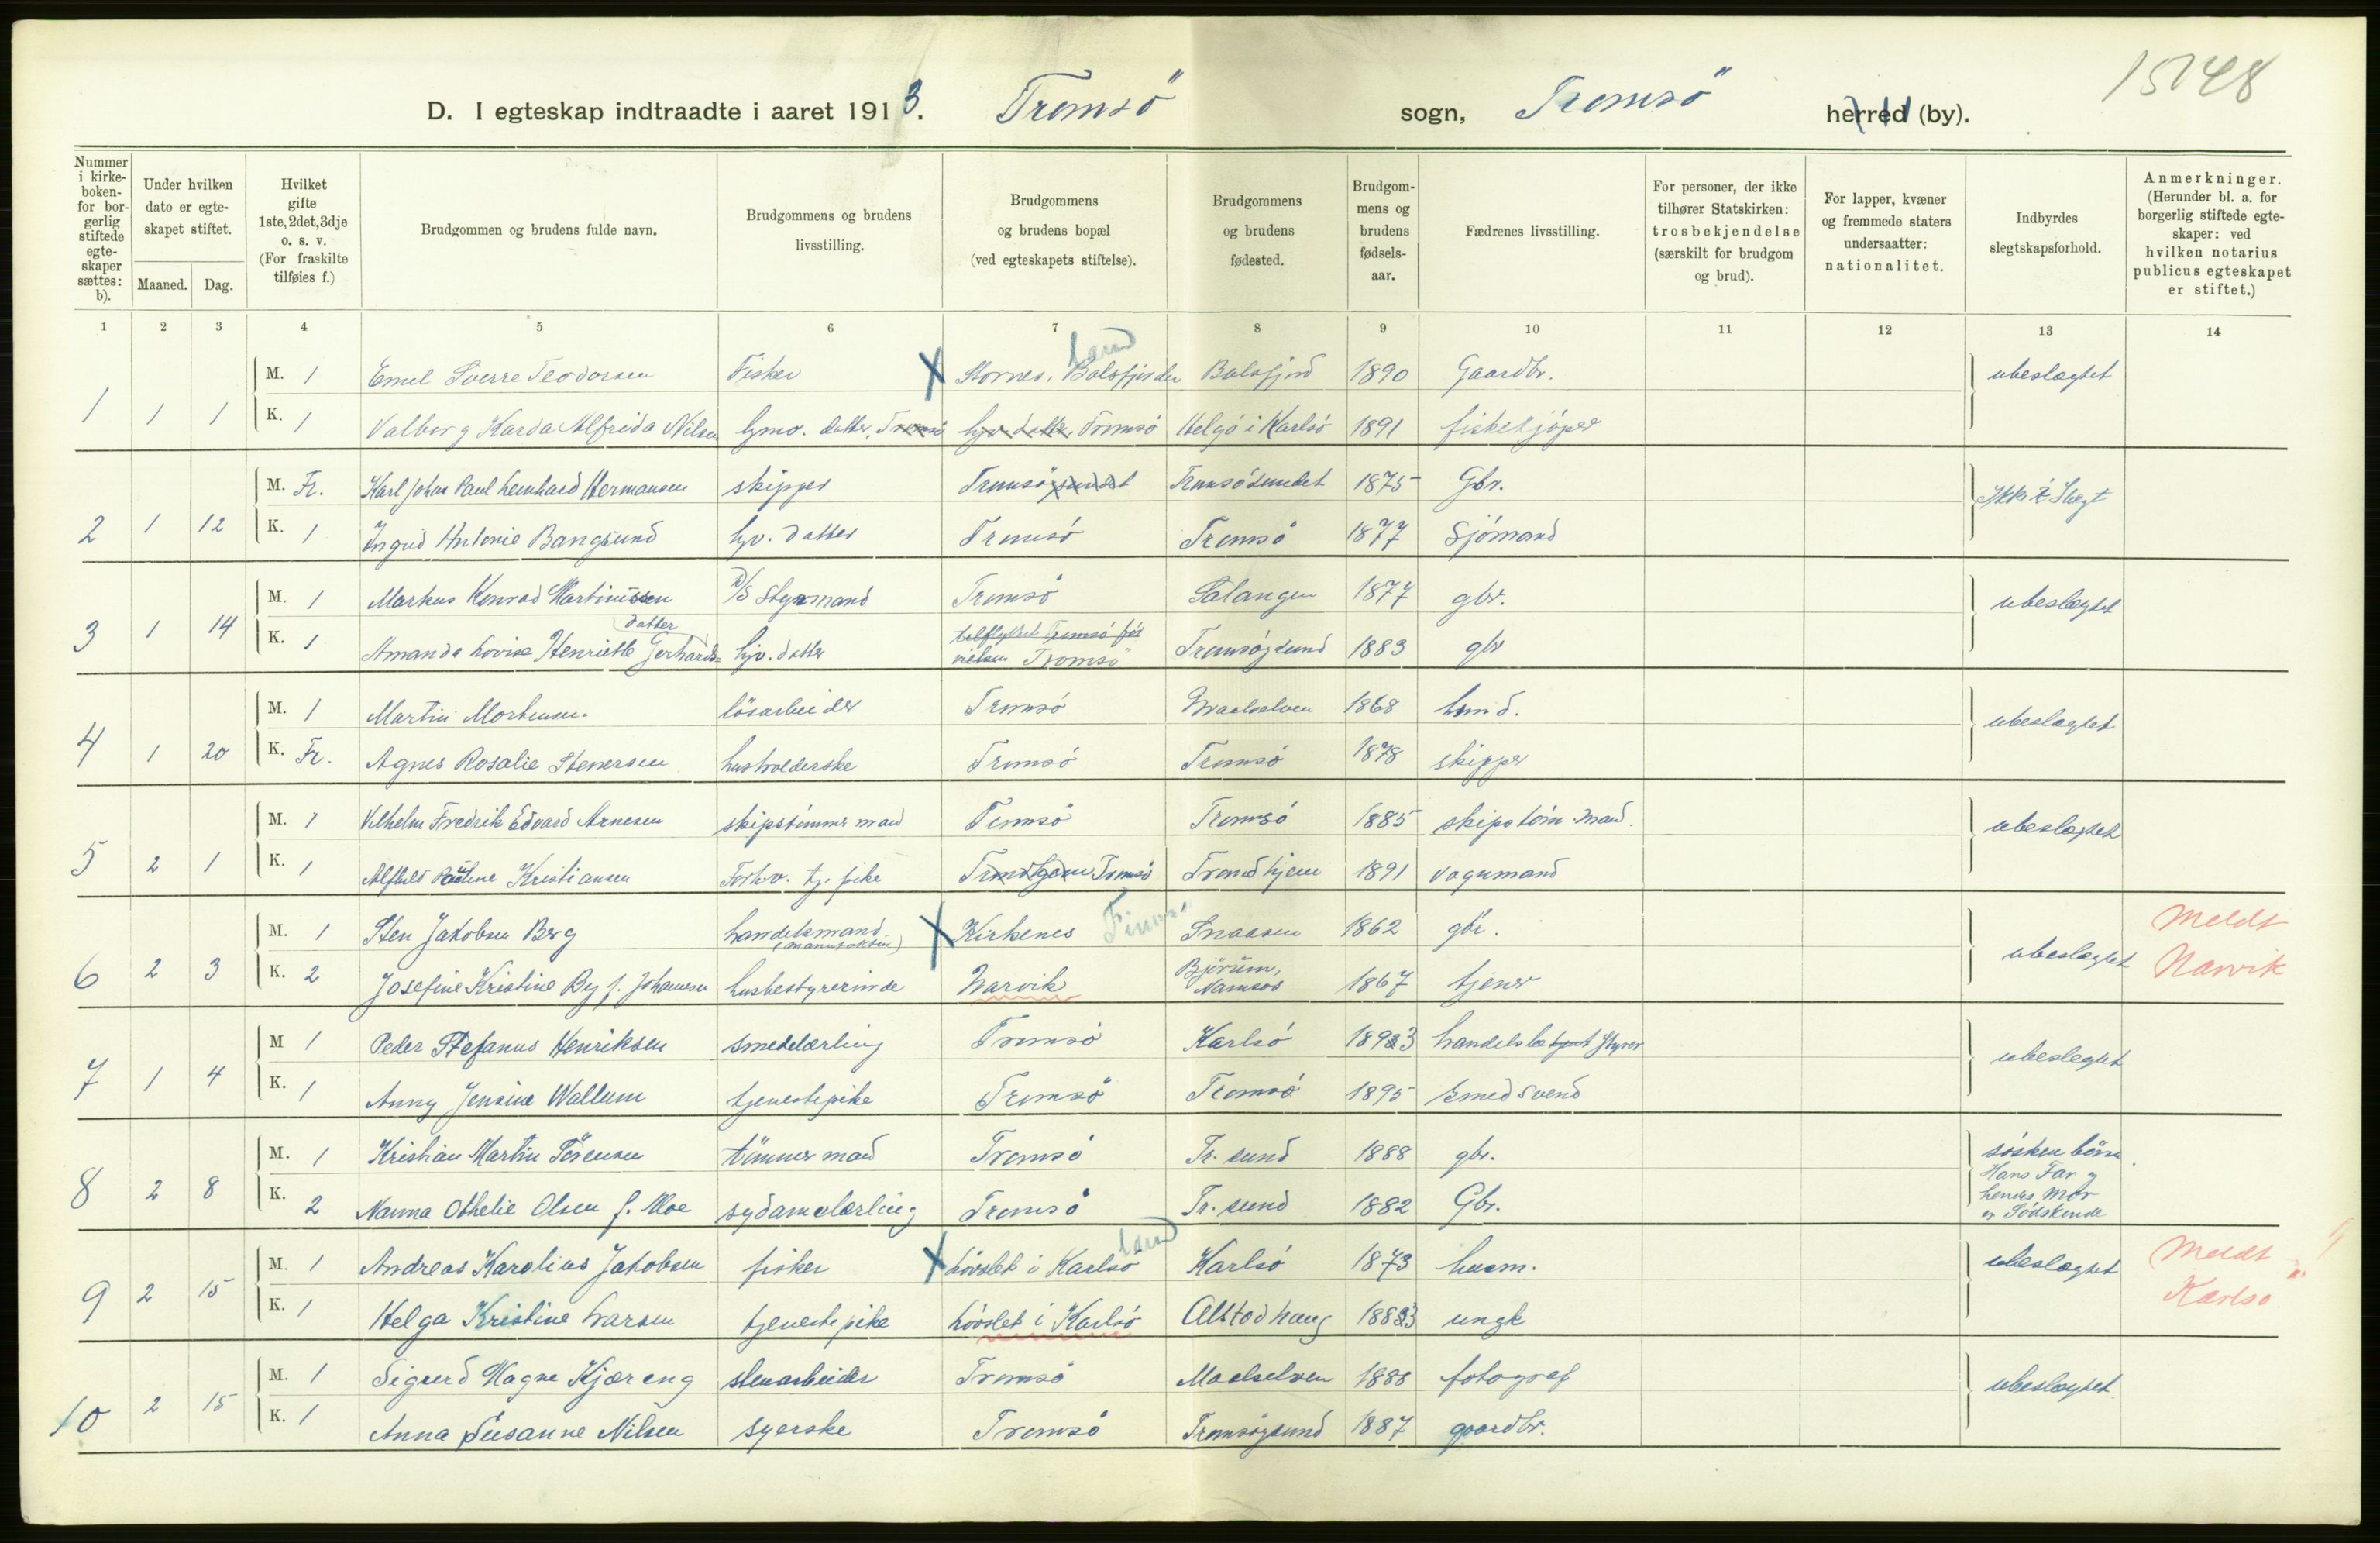 15748
D. I egteskap indtraadte i aaret 1913. Tromsö sogn, Tromsö herred (by).
Nummer i kirkeboken- for borgerlig stiftede egteskaper sættes: b).
Under hvilken dato er egteskapet stiftet.
Maaned. Dag.
Hvilket gifte 1ste, 2det, 3dje o. s. v. (For fraskilte tilføies f.)
Brudgommen og brudens fulde navn.
Brudgommens og brudens livsstilling.
Brudgommens og brudens bopæl (ved egteskapets stiftelse).
Brudgommens og brudens fødested.
Brudgommens og brudens fødselsaar.
Fædrenes livsstilling.
For personer, der ikke tilhører Statskirken: trosbekjendelse (særskilt for brudgom og brud).
For lapper, kvæner og fremmede staters undersaatter: nationalitet.
Indbyrdes slegtskapsforhold.
Anmerkninger. (Herunder bl. a. for borgerlig stiftede egteskaper: ved hvilken notarius publicus egteskapet er stiftet.)
1 2 3 4 5 6 7 8 9 10 11 12 13 14
land
M. 1 Emil Sverre Teodorsen Fisker X Stornes, Balsfjorden Balsfjord 1890 Gaardbr. ubeslægtet
1 1 1 K. 1 Valborg Karda Alfrida Nilsen hjmv. datter, Tromsö hjv. datter, Tromsö Helgö i Karlsö 1891 fiskekjöper
M. Fr. Karl Johan Paul Leonhard Hermansen skipper Tromsöysundet Tromsösundet 1875 Gbr. Ikke i Slægt
2 1 12 K. 1 Ingrid Antonie Bangsund hjv. datter Tromsö Tromsö 1877 Sjömand
M. 1 Markus Konrad Martinussen D/S Styrmand Tromsö Salangen 1877 gbr. ubeslægtet
datter
3 1 14 K. 1 Amanda Lovise Henriette Gerhards= hjv. datter tilflyttet Tromsö før vielsen Tromsö Tromsöysund 1883 gbr
M. 1 Martin Mortensen lösarbeider Tromsö Maalselven 1868 husmd. ubeslægtet
4 1 20 K. Fr. Agnes Rosalie Stenersen husholderske Tromsö Tromsö 1878 skipper
M. 1 Vilhelm Fredrik Edvard Arnesen skipstömmermand Tromsö Tromsö 1885 skipstöm.mand. ubeslægtet
5 2 1 K. 1 Alfhild Pauline Kristiansen Forhv. tj. pike Trondhjem Tromsö Trondhjem 1891 vognmand
M. 1 Sten Jakobsen Berg handelsmand (manufaktur) X Kirkenes Finm. Snaasen 1862 gbr. ubeslægtet Meldt
6 2 3 K. 2 Josefine Kristine By f. Johansen husbestyrerinde Narvik Bjørum, Namsos 1867 tjener Narvik
M 1 Peder Stefanus Henriksen smedelærling Tromsö Karlsö 1893 handelsbetjent styrer ubeslegtet
7 1 4 K. 1 Anny Jensine Wallum tjenestepike Tromsö Tromsö 1895 smedsvend
M. 1 Kristian Martin Sörensen tömmermand Tromsö Tr. sund 1888 gbr. söskenbörn. Hans Far og hendes Mor er Södskende
8 2 8 K. 2 Nanna Othelie Olsen f. Moe sydamelærling Tromsö Tr. sund 1882 Gbr.
land
M. 1 Andreas Karolius Jakobsen fisker X Lövslet i Karlsö Karlsö 1873 husm. ubeslægtet Meldt
9 2 15 K. 1 Helga Kristine Larsen tjenestepike Lövslet i Karlsö Alstadhaug 1883 ungk Karlsö
M. 1 Sigurd Magne Kjæreng stenarbeider Tromsö Maalselven 1888 fotograf ubeslægtet
10 2 15 K. 1 Anna Susanne Nilsen syerske Tromsö Tromsöysund 1887 gaardbr.